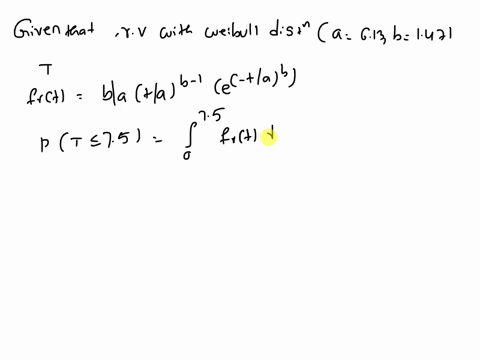 Given that , r.v with weibull distⁿ ( a = 6.13, b = 1.471
T
fr(t) = b/a (t/a)^b-1 (e^(-t/a)^b)
P ( T ≤ 7.5 ) = ∫_0^7.5 fr(t)